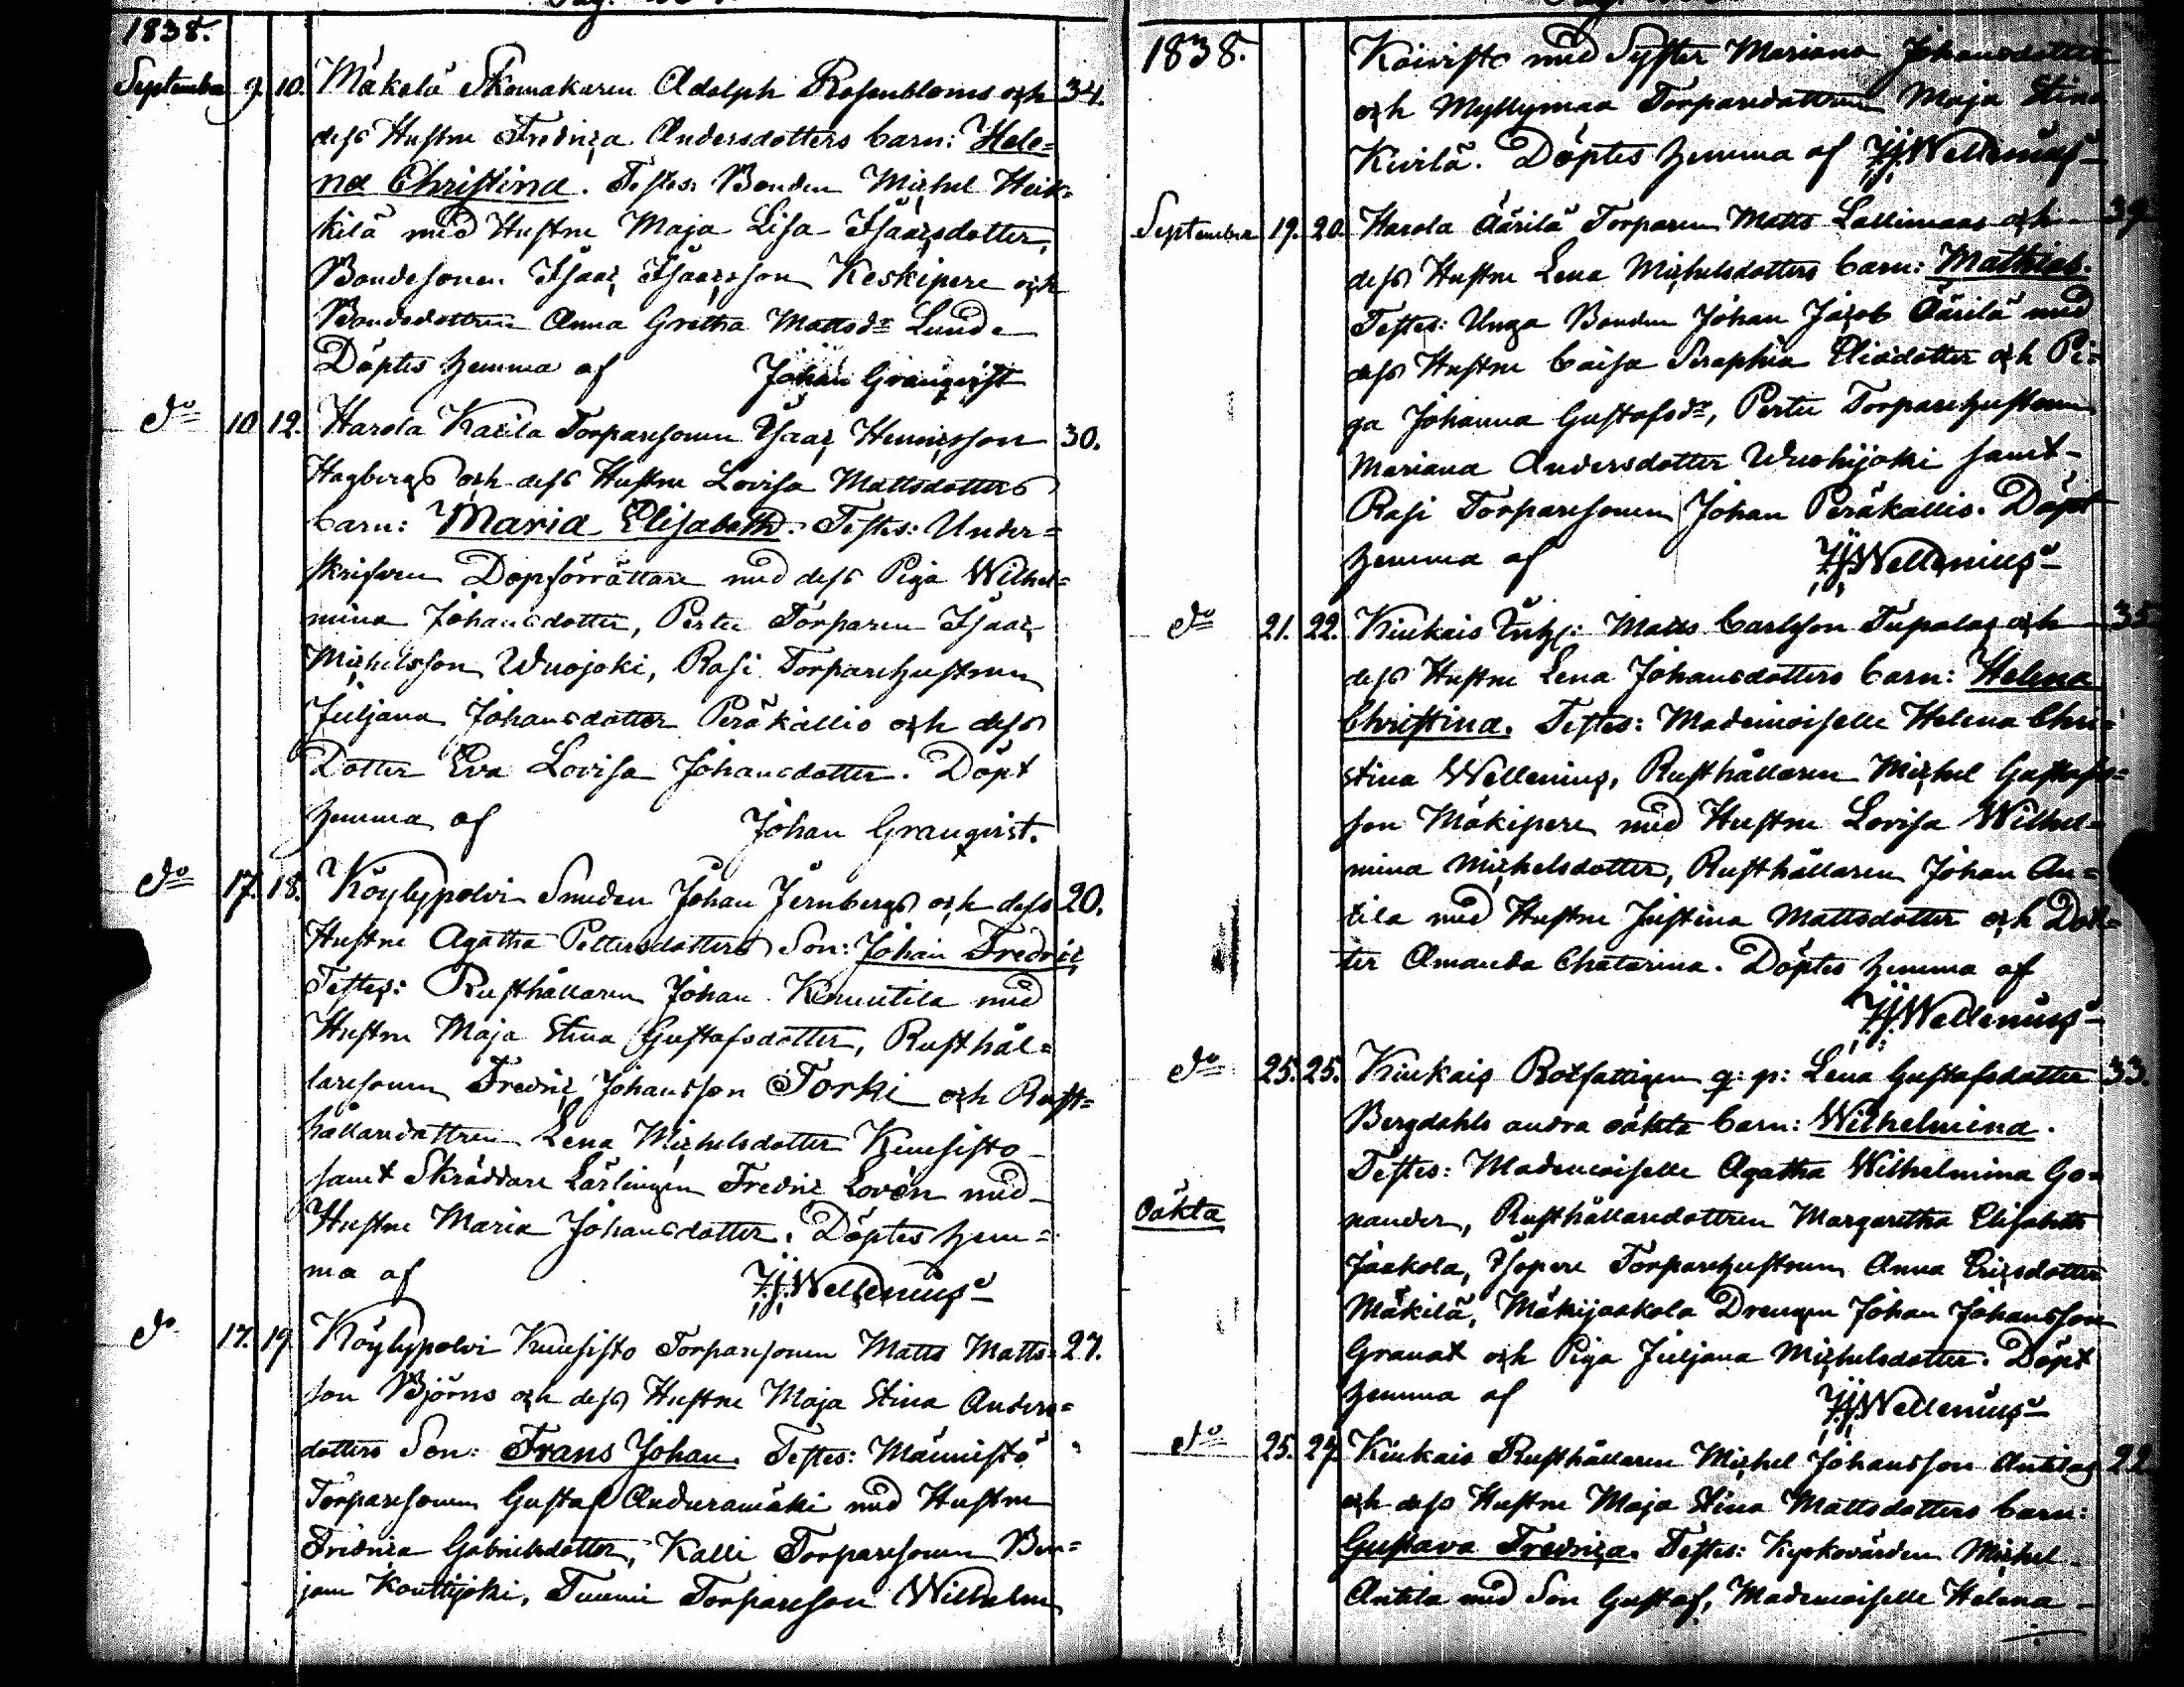 1838.
September 9. 10. Mäkelä Skomakaren Adolph Rosenbloms och 34.
dess Hustru Fredrica Andersdotters barn: Hele=
na Christina. Testes: Bonden Michel Heik=
kilä med Hustru Maja Lisa Isaacsdotter,
Bondesonen Isaac Isaacsson Keskipere och
Bondedottren Anna Gretha Mattsdr Lunde
Döptes hemma af Johan Granqvist
do 10. 12. Harola Karila Torparesonen Isaac Henricsson 30.
Hagbergs och dess Hustru Lovisa Mattsdotters
barn: Maria Elisabeth. Testes: Under=
skrifvren Dopförrättare med dess Piga Wilhel=
mina Johansdotter, Pertu Torparen Isaac
Michelsson Wuojoki, Rasi Torparehustrun
Juljana Johansdotter Peräkallio och dess
Dotter Eva Lovisa Johansdotter. Döpt
hemma af Johan Granqvist.
do 17. 18. Köylypolvi Smeden Johan Jernbergs och dess 20.
Hustru Agatha Pettersdotters Son: Johan Fredric
Testes: Rusthållaren Johan Knuutila med
Hustru Maja Stina Gustafsdotter, Rusthål=
laresonen Fredric Johansson Torki och Rust=
hållaredottren Lena Michelsdotter Kuusisto
samt Skräddare Lärlingen Fredric Lovén med
Hustru Maria Johansdotter. Döptes hem=
ma af J.J. Wellenius
do 17. 19. Köylypolvi Kuusisto Torparesonen Matts Matts= 27.
son Björns och dess Hustru Maja Stina Anders=
dotters Son: Frans Johan. Testes: Männistö
Torparesonen Gustaf Anduramäki med Hustru
Fredrica Gabrielsdotter, Kalli Torparesonen Ben=
jam Kouttijoki, Tuumi Torpareson Wilhelm
1838.
Koivisto med Syster Mariana Johansdotter
och Myllymaa Torparedottren Maja Stina
Kivilä. Döptes hemma af J.J. Wellenius
September 19. 20. Harola Äärilä Torparen Matts Lallimaas och 39.
dess Hustru Lena Michelsdotters barn: Mathias.
Testes: Unga Bonden Johan Jacob Äärilä med
dess Hustru Caisa Seraphia Eliædotter och Pi=
ga Johanna Gustafsdr, Pertu Torparehustrun
Mariana Andersdotter Wuohijoki samt
Rasi Torparesonen Johan Peräkallio. Döpt
hemma af J.J. Wellenius
do 21. 22. Kiukais Matts Carlsson Tupalas och 35.
dess Hustru Lena Johansdotters barn: Helena
Christina. Testes: Mademoiselle Helena Chri=
stina Wellenius, Rusthållaren Michel Gustafs=
son Mäkipere med Hustru Lovisa Wilhel=
mina Michelsdotter, Rusthållaren Johan An=
tila med Hustru Justina Mattsdotter och Dot=
ter Amanda Chatarina. Döptes hemma af
J.J. Wellenius
do 25. 25. Kiukais Rotfattigen q: p: Lena Gustafsdotter 33.
Bergdahls andra oäkta barn: Wilhelmina.
Testes: Mademoiselle Agatha Wilhelmina Go=
Oäkta
nander, Rusthållaredottren Margaretha Elisabeth
Jaakola, Isopere Torparehustrun Anna Ericsdotter
Mäkilä, Mäkijaakola Drengen Johan Johansson
Granat och Piga Juljana Michelsdotter. Döpt
hemma af J.J. Wellenius
do 25. 27. Kiukais Rusthållaren Michel Johansson Antilas 22.
och dess Hustru Maja Stina Mattsdotters barn:
Gustava Fredrica. Testes: Kyrkovärden Michel
Antila med Son Gustaf, Mademoiselle Helena